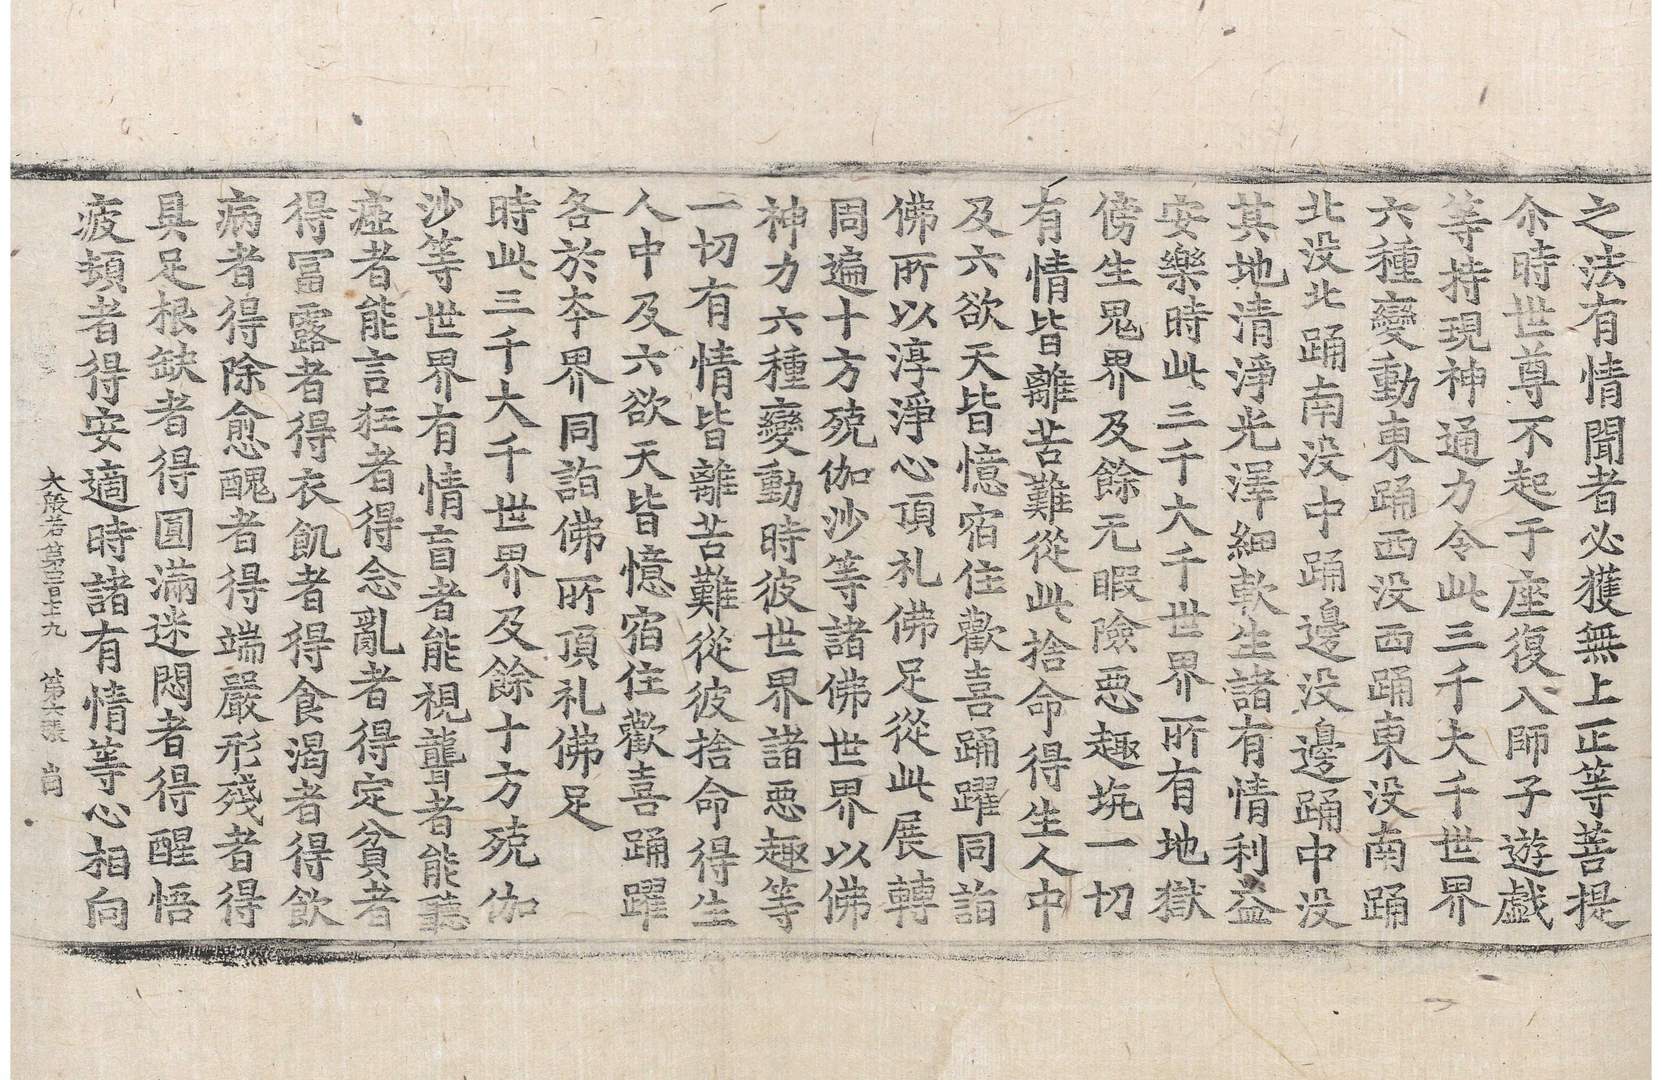 之法有情聞者必獲無上正等菩提
尒時世尊不起于座復入師子遊戲
等持現神通力令此三千大千世界
六種變動東踊西没西踊東没南踊
北没北踊南没中踊邊没邊踊中没
其地清淨光澤細軟生諸有情利益
安樂時此三千大千世界所有地獄
傍生鬼界及餘无暇險惡趣坑一切
有情皆離苦難從此捨命得生人中
及六欲天皆憶宿住歡喜踊躍同詣
佛所以淳淨心頂礼佛足從此展轉
周遍十方殑伽沙等諸佛世界以佛
神力六種變動時彼世界諸惡趣等
一切有情皆離苦難從彼捨命得生
人中及六欲天皆憶宿住歡喜踊躍
各於本界同詣佛所頂礼佛足
時此三千大千世界及餘十方殑伽
沙等世界有情盲者能視聾者能聽
瘂者能言狂者得念亂者得定貧者
得冨露者得衣飢者得食渴者得飲
病者得除愈醜者得端嚴形殘者得
具足根缺者得圓滿迷悶者得醒悟
疲頓者得安適時諸有情等心相向
大般若第